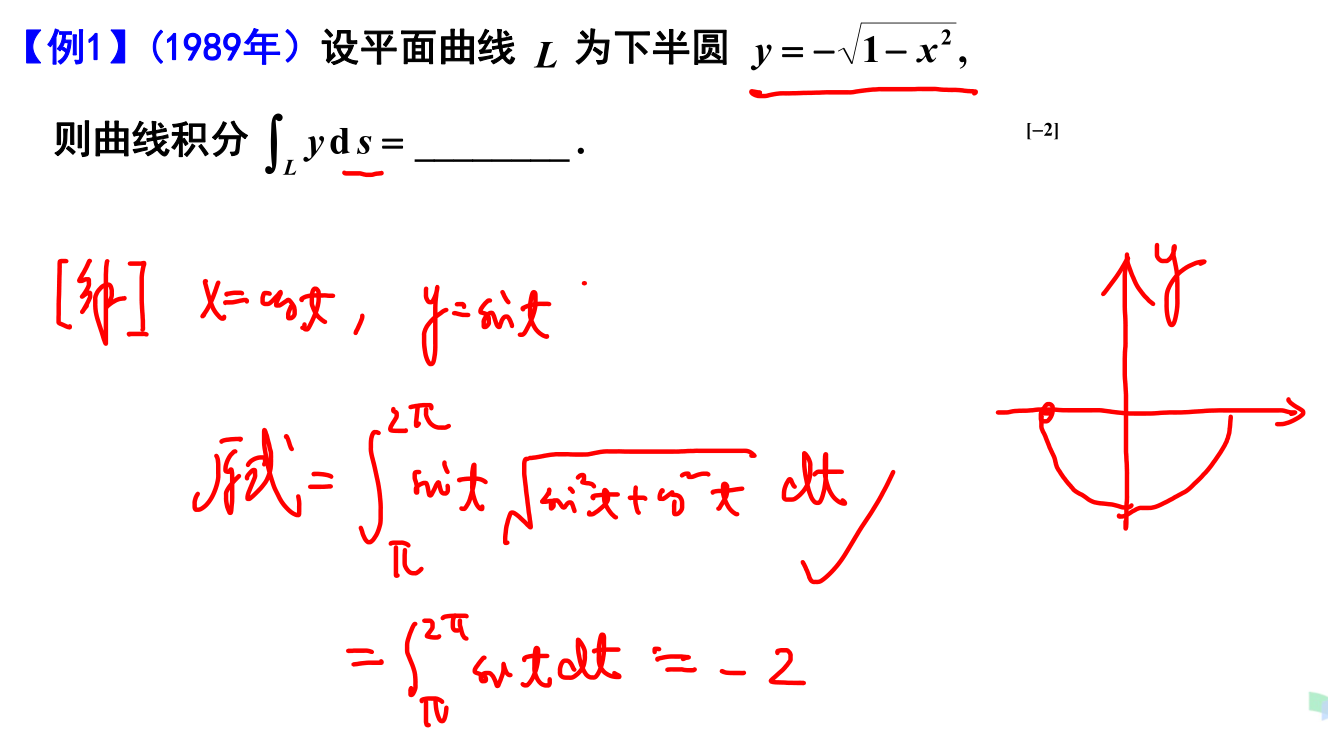 【例1】(1989年) 设平面曲线 L 为下半圆 y = -√(1-x²),
则曲线积分 ∫_L y ds = ________ .
[-2]
[解] x=cost, y=sint
y
原式 = ∫_π^{2π} sint √(sin²t+cos²t) dt
= ∫_π^{2π} sint dt = -2